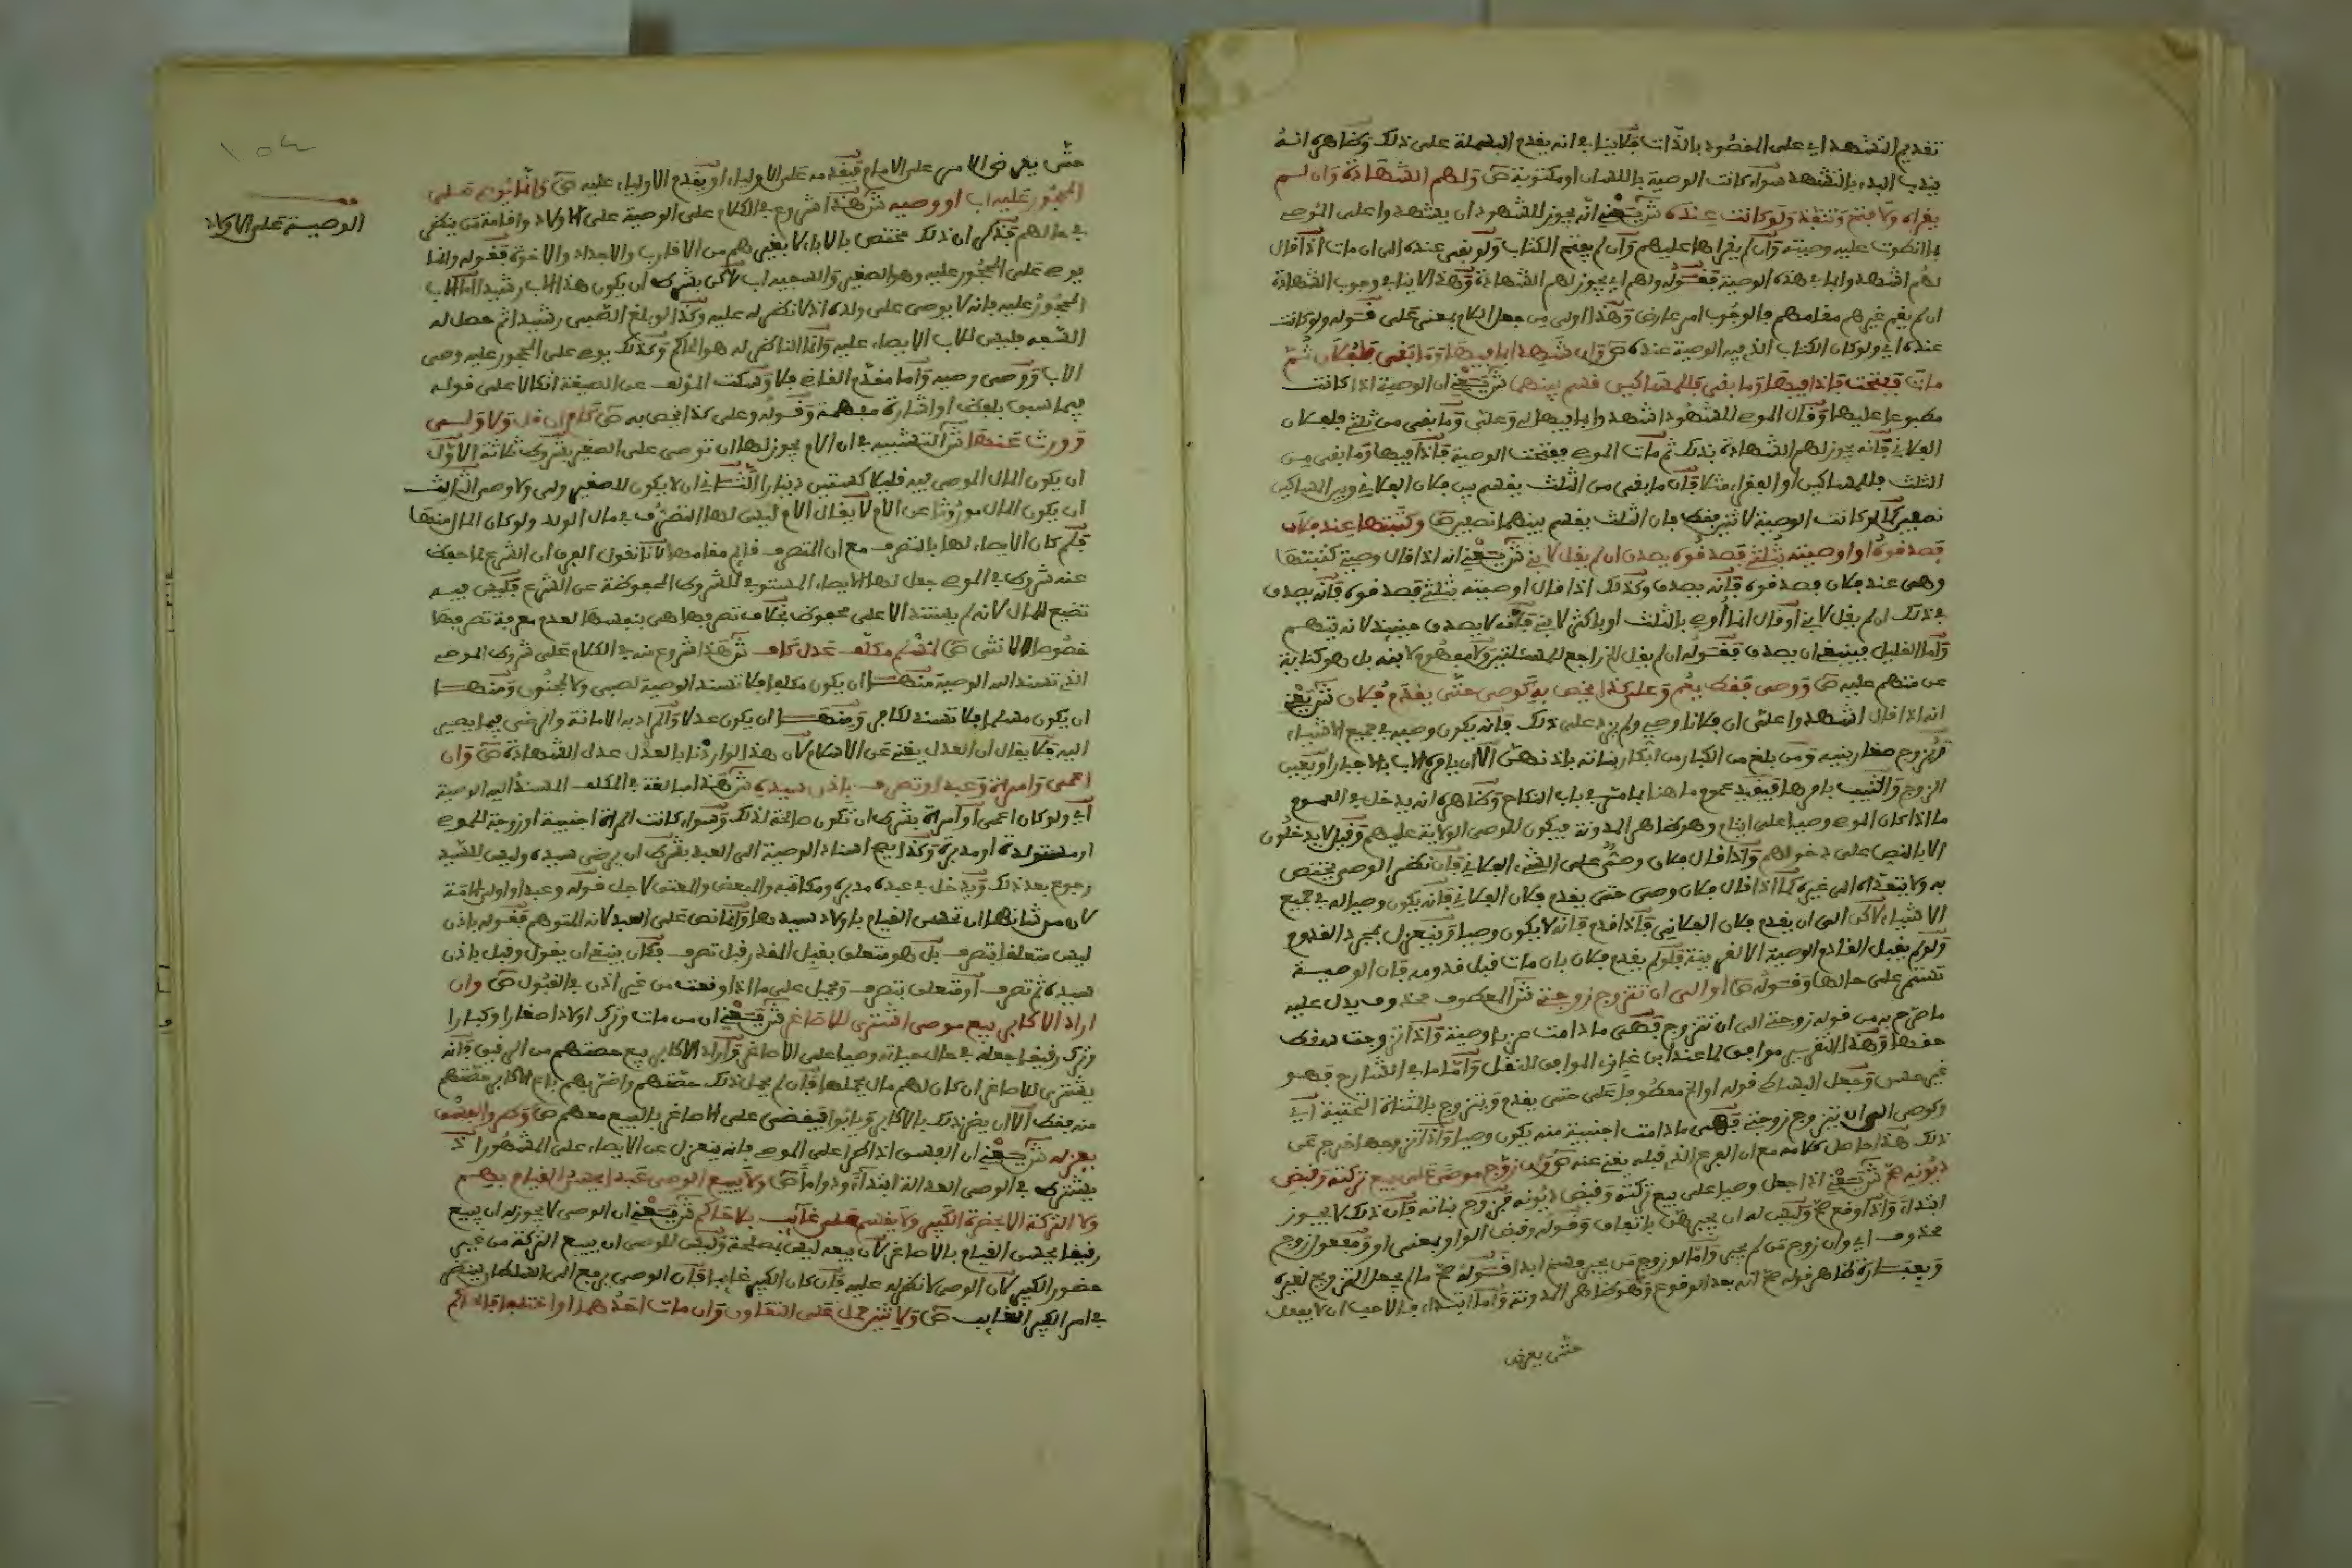 تقديم التشهد اي على المقصود بالذات فلا ينافي انه يقدم البسملة على ذلك وظاهره انه
يندب البدء بالتشهد سواء كانت الوصية باللسان او مكتوبة ص ولهم الشهادة وان لم
يقراه ولا فتح وتنفذ ولو كانت عنده ش يعني انه يجوز للشهود ان يشهدوا على الموصي
بما انطوت عليه وصيته وان لم يقراها عليهم وان لم يفتح الكتاب ولو بقي عنده الى ان مات اذا قال
لهم اشهدوا بما في هذه الوصية فقوله ولهم اي يجوز لهم الشهادة وهذا لا ينافي وجوب الشهادة
ان لم يقم غيرهم مقامهم فالوجوب امر عارض وهذا اولى من جعل اللام بمعنى على قوله ولو كانت
عنده اي ولو كان الكتاب الذي فيه الوصية عنده ص وان شهدا بما فيها وما بقي فلفلان ثم
مات ففتحت فاذا فيها وما بقي فللمساكين قسم بينهما ش يعني ان الوصية اذا كانت
مطبوعا عليها وقال الموصي للشهود اشهدوا بما فيها لي وعلي وما بقي من ثلثي فلفلان
الفلاني فانه يجوز لهم الشهادة بذلك ثم مات الموصي ففتحت الوصية فاذا فيها وما بقي من
الثلث فللمساكين او الفقراء مثلا فان ما بقي من الثلث يقسم بين فلان الفلاني وبين المساكين
نصفين كما لو كانت الوصية لاثنين فقط فان الثلث يقسم بينهما نصفين ص وكتبتها عند فلان
فصدقوه او اوصيته بثلثي فصدقوه يصدق ان لم يقل لابني ش يعني انه اذا قال وصيتي كتبتها
وهي عند فلان فصدقوه فانه يصدق وكذلك اذا قال اوصيته بثلثي فصدقوه فانه يصدق
في ذلك ان لم يقل لابني او قال انما اوصى بالثلث او باكثر لابني فانه لا يصدق حينئذ لانه يتهم
واما القليل فينبغي ان يصدق فقوله ان لم يقل الخ راجع للمسئلتين ولا مفهوم لابنه بل هو كناية
عن متهم عليه ص ووصي فقط يعم وعلى كذا يخص به كوصي حتى يقدم فلان ش يعني
انه اذا قال اشهدوا على ان فلانا وصيي ولم يزد على ذلك فانه يكون وصيه في جميع الاشياء
ويزوج صغار بنيه ومن بلغ من الكبار من ابكار بناته باذنهن الا ان يامره الاب بالاجبار او يعين
الزوج والثيب بامرها فيقيد عموم ما هنا بما مر في باب النكاح وظاهره انه يدخل في العموم
ما اذا كان الموصي وصيا على ايتام وهو ظاهر المدونة فيكون للوصي الولاية عليهم وقيل لا يدخلون
الا بالنص على دخولهم واذا قال فلان وصيي على الشيء الفلاني فان نظر الوصي يختص
به ولا يتعداه الى غيره كما اذا قال فلان وصي حتى يقدم فلان الفلاني فانه يكون وصيا له في جميع
الاشياء لاكن الى ان يقدم فلان الفلاني فاذا قدم فانه لا يكون وصيا وينعزل بمجرد القدوم
ولو لم يقبل القادم الوصية الا لقرينة فلو لم يقدم فلان بان مات قبل قدومه فان الوصية
تستمر على حالها وقوله ص او الى ان تتزوج زوجتي ش المعطوف محذوف يدل عليه
ما صرح به من قوله زوجتي الى ان تتزوج فهي ما دامت عزبا وصية واذا تزوجت سقط
حقها وهذا التقرير موافق لما عند ابن غازي الموافق للنقل واما ما في الشارح فهو
غير حسن وجعل البساطي قوله او الخ معطوفا على حتى يقدم ويتزوج بالمثناة التحتية اي
وكوصي الى ان يتزوج زوجتي فهي ما دامت اجنبية منه يكون وصيا واذا تزوجها خرج عن
ذلك هذا حاصل كلامه مع ان الفرع الذي قبله يغني عنه ص وان زوج موصى على بيع تركته وقبض
ديونه صح ش يعني اذا جعل وصيا على بيع تركته وقبض ديونه فزوج بناته فان ذلك لا يجوز
ابتداء واذا وقع صح وليس له ان يجبرهن باتفاق وقوله وقبض الواو بمعنى او ومفعول زوج
محذوف اي وان زوج من لم يجبر واما لو زوج من يجبر فسخ ابدا فقوله صح ما لم يجعل التزويج لغيره
وبعبارة ظاهر قوله صح انه بعد الوقوع وهو ظاهر المدونة واما ابتداء فالاحب ان لا يفعل
حتى يعرض
الوصية على الاولاد
حتى يعرض الامر على الامام فيقدمه على الاولياء او يقدم الاولياء عليه ص وانما يوصي على
المحجور عليه اب او وصيه ش هذا شروع في الكلام على الوصية على الاولاد واقامة من ينظر
في مالهم فذكر ان ذلك مختص بالاباء لا بغيرهم من الاقارب والاجداد والاخوة فقوله وانما
يوصي على المحجور عليه وهو الصغير والسفيه اب لاكن بشرط ان يكون هذا الاب رشيدا اما الاب
المحجور عليه فانه لا يوصي على ولده اذ لا نظر له عليه وكذا لو بلغ الصبي رشيدا ثم حصل له
السفه فليس للاب الايصاء عليه وانما الناظر له هو الحاكم وكذلك يوصي على المحجور عليه وصي
الاب ووصي وصيه واما مقدم القاضي فلا وسكت المؤلف عن الصيغة اتكالا على قوله
فيما سبق بلفظ او اشارة مفهمة وقوله وعلى كذا يخص به ص كام ان قل ولا ولي
وورث عنها ش التشبيه في ان الام يجوز لها ان توصي على الصغير بشروط ثلاثة الاول
ان يكون المال الموصى فيه قليلا كستين دينارا الثاني ان لا يكون للصغير ولي ولا وصي الثالث
ان يكون المال موروثا عن الام لا يقال الام ليس لها التصرف في مال الولد ولو كان المال منها
فلم كان الايصاء لها بالتصرف مع ان المتصرف قائم مقامها لانا نقول الفرق ان الشرع لما حفظ
عنه شروط في الموصي جعل لها الايصاء المستوفي للشروط المحفوظة عن الشرع فليس فيه
تضيع للمال لانه لم يستند الا على محفوظ بخلاف تصرفها هي بنفسها لعدم معرفة تصرفها
خصوصا الانثى ص لمسلم مكلف عدل كاف ش هذا شروع منه في الكلام على شروط الموصي
الذي تسند اليه الوصية منها ان يكون مكلفا فلا تسند الوصية لصبي ولا لمجنون ومنها
ان يكون مسلما فلا تسند لكافر ومنها ان يكون عدلا والمراد به الامانة والرضى فيما يصير
اليه فلا يقال ان العدل يغني عن الاسلام لان هذا لو اردنا بالعدل عدل الشهادة ص وان
اعمى وامراة وعبدا وتصرف باذن سيده ش هذا مبالغة في المكلف المسند اليه الوصية
اي ولو كان اعمى او امراة بشرط ان تكون صالحة لذلك وسواء كانت المراة اجنبية او زوجة للموصي
او مستولدة او مدبرة وكذا يصح اسناد الوصية الى العبد بشرط ان يرضى سيده وليس للسيد
رجوع بعد ذلك ويدخل في عبده مدبره ومكاتبه والمبعض والمعتق لاجل قوله وعبدا واولى الامة
لان من شانها ان تحسن القيام باولاد سيدها وانما نص على العبد لانه المتوهم فقوله باذن
ليس متعلقا بتصرف بل هو متعلق بقبل المقدر قبل تصرف فكان ينبغي ان يقول وقبل باذن
سيده ثم تصرف او متعلق بتصرف ويحمل على ما اذا وقعت من غير اذن في القبول ص وان
اراد الاكابر بيع موصى اشتري للاصاغر ش يعني ان من مات وترك اولادا صغارا وكبارا
وترك رقيقا جعله في حال حياته وصيا على الاصاغر واراد الاكابر بيع حصتهم من الرقيق فانه
يشترى للاصاغر ان كان لهم مال يحملها فان لم يحمل ذلك حصتهم واضر بهم باع الاكابر حصتهم
منه فقط الا ان يضر ذلك بالاكابر ويابوا فيقضى على الاصاغر بالبيع معهم ص وطرو الفسق
يعزله ش يعني ان الفسق اذا طرا على الموصى فانه ينعزل عن الايصاء على المشهور اذ
يشترط في الوصي العدالة ابتداء ودواما ص ولا يبيع الوصي عبدا يحسن القيام بهم
ولا التركة الا بحضرة الكبير ولا يقسم على غائب بلا حاكم ش يعني ان الوصي لا يجوز له ان يبيع
رقيقا يحسن القيام بالاصاغر لان بيعه ليس بمصلحة وليس للوصي ان يبيع التركة من غير
حضور الكبير لان الوصي لا نظر له عليه فان كان الكبير غايبا فان الوصي يرفع الى السلطان ينظر
في امر الكبير الغايب ص ولاثنين حمل على التعاون وان مات احدهما او اختلفا فالحاكم